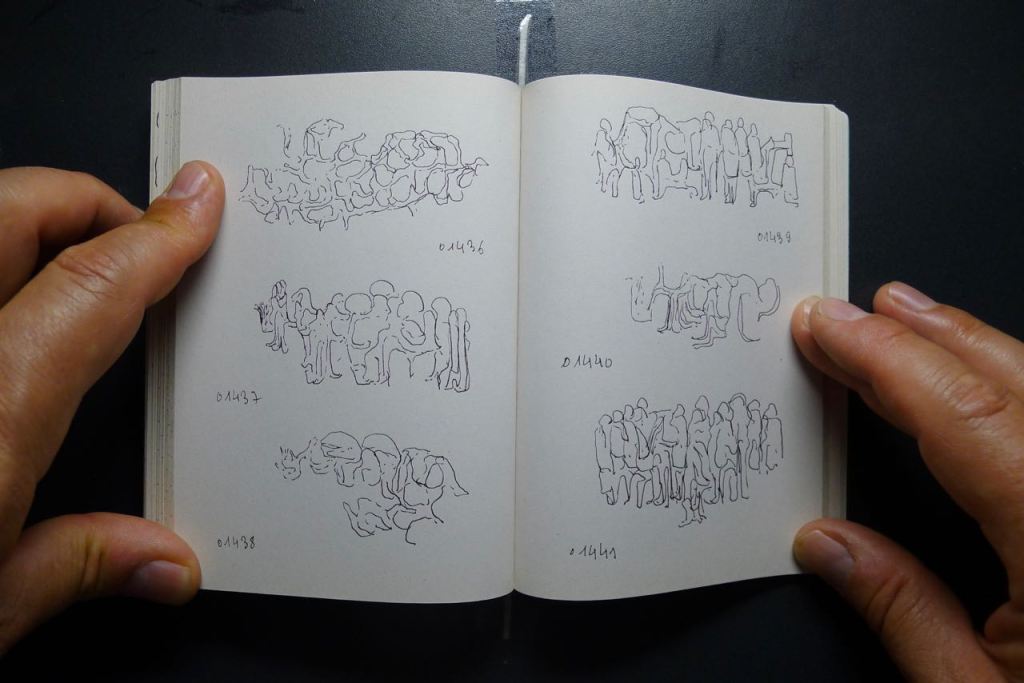 01436
01437
01438
01439
01440
01441